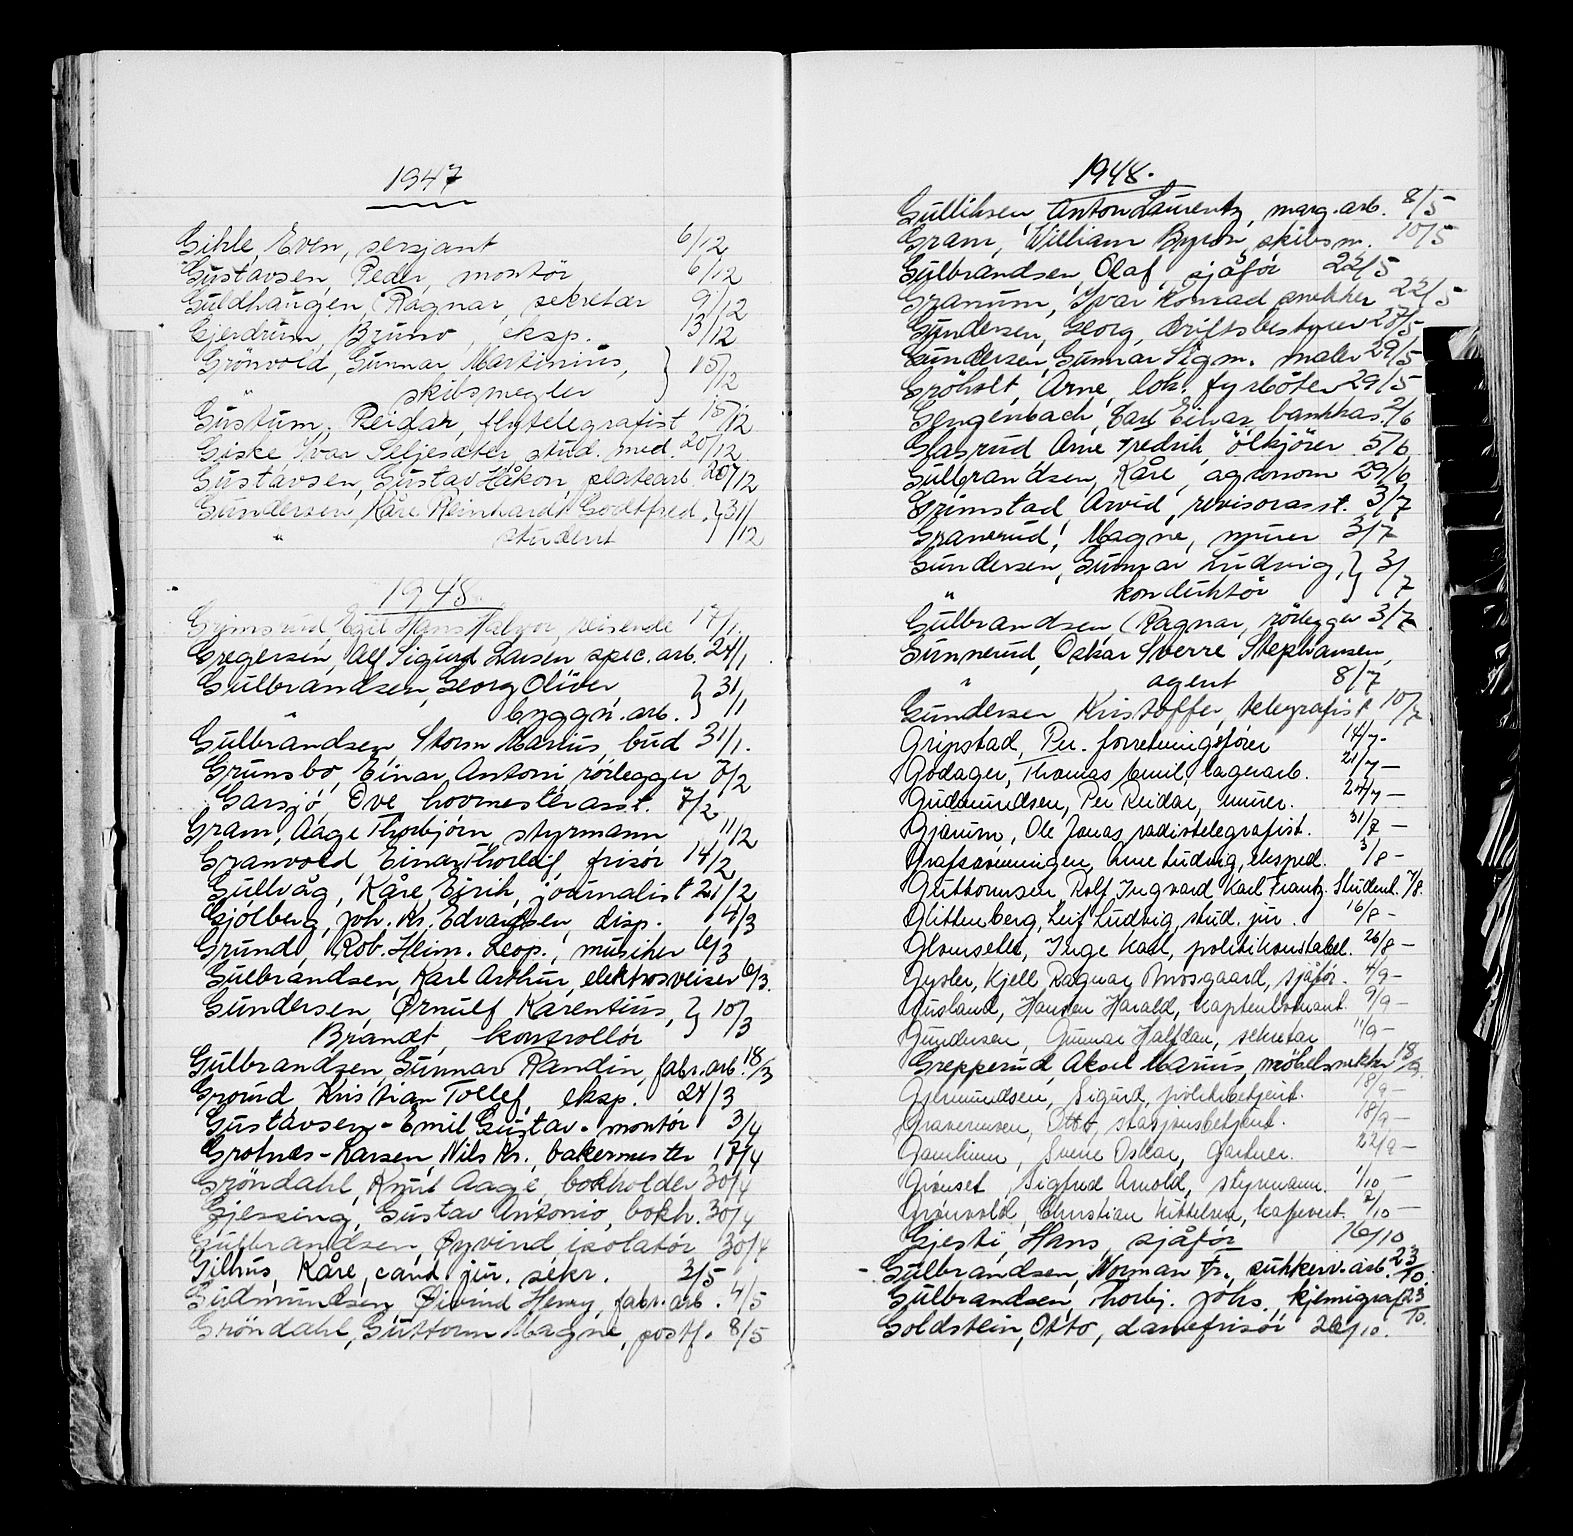 1947
Gihle, Even, sersjant 6/12
Gustavsen, Peder, montör 6/12
Guldhaugen, Ragnar, sekretær 9/12
Gjerdrum, Bruno, eksp. 13/12
Grönvold, Gunnar Martinius, } 15/12
" skibsmegler
Gustum, Reidar, flytelegrafist 15/12
Giske Ivar Siljesæter, stud. med. 20/12
Gustavsen, Gustav Håkon, platearb. 20/12
Gundersen, Kåre Reinhardt Godtfred. } 31/12
" student
1948.
Gjimsrud, Egil Hans Halvor, reisende 17/1.
Gregersen, Alf Sigurd Larsen spec. arb. 24/1.
Gulbrandsen, Georg Oliver, } 31/1
" byggn. arb.
Gulbrandsen Storm Marius, bud 31/1.
Grunsbo, Einar Antoni rörlegger 7/2
Garsjö, Ove hovmesterasst. 7/2
Gram, Aage Thorbjörn, styrmann 11/2
Granvold, Einar Thorleif, frisör 14/2
Gullvåg, Kåre, Eirik, journalist 21/2
Gjölberg, Joh. Kr. Edvardsen, disp. 4/3
Grund, Rob. Heinr. Leop., musiker 6/3
Gulbrandsen, Karl Arthur, elektrosveiser 6/3.
Gundersen, Ørnulf Karentius, } 10/3
Brandt, kontrollör
Gulbrandsen, Gunnar Randin, fabr. arb. 18/3
Groud, Kristian Tollef, eksp. 24/3
Gustavsen - Emil Gustav - montör 3/4
Grotnæs - Larsen, Nils Kr., bakermester 17/4
Gröndahl, Knut Aage, bokholder 30/4
Gjessing, Gustav Antonio, bokh. 30/4
Gulbrandsen, Öyvind, isolatör 30/4
Gilhus, Kåre, cand. jur. sekr. 3/5
Gudmundsen, Öivind Henry, fabr. arb. 4/5
Gröndahl, Guttorm Magne, postf. 8/5
1948.
Gulliksen, Anton Laurentz, marg. arb. 8/5
Gram, William Byron, skibsm. 10/5
Gulbrandsen, Olaf, sjåför 22/5
Granum, Ivar Konrad snekker 22/5
Gundersen, Georg, driftsbestyrer 28/5
Gundersen, Gunnar Sigm. maler 29/5
Gröholt, Arne, lok. fyrböter 29/5
Gengenbach, Carl Einar, bankkas. 2/6
Gasrud Arne Fredrik, ölkjörer 5/6
Gulbrandsen, Kåre, agronom 29/6
Grimstad, Arvid, revisorasst. 3/7
Granerud, Magne, murer 3/7
Gundersen, Gunnar Ludvig, } 3/7
" konduktör
Gulbrandsen, Ragnar, rörlegger 3/7
Gunnerud, Oskar Sverre Stephansen,
" agent 8/7
Gundersen Kristoffer, telegrafist 10/7
Gripstad, Per. forretningsförer 14/7-
Godager, Thomas Emil, lagerarb. 21/7-
Gudmundsen, Per Reidar, murer. 24/7-
Gjærum, Ole Jonas, radiotelegrafist. 31/7-
Grafsrønningen, Arne Ludvig, eksped. 3/8-
Guttormsen, Rolf Ingvard Karl Frantz. Student. 7/8.
Glittenberg, Leif Ludvig, stud. jur. 16/8-
Glomseth, Inge Karl, politikonstabel. 26/8-
Gysler, Kjell Ragnar Mosgaard, sjåför. 4/9-
Gusland, Hansen Harald, kapteinløitnant. 9/9-
Gundersen, Gunnar Halfdan, sekretær 11/9-
Grepperud, Aksel Marius, möbelsnekker 18/9.
Gjermundsen, Sigurd, politibetjent. 18/9-
Gravermoen, Otto, stasjonsbetjent. 18/9.
Gamlem, Sverre Oskar, Gartner. 22/9-
Grinset, Sigfred Arnold, styrmann. 1/10-
Grönvold, Christian Kittelsen, kafevert. 2/10-
Gjesti, Hans, sjåför 16/10
- Gulbrandsen, Norman Fr., sukkerv. arb. 23/10.
Gulbrandsen, Thorbj. Johs., kjemigraf 23/10.
Goldstein, Otto, damefrisör 26/10.